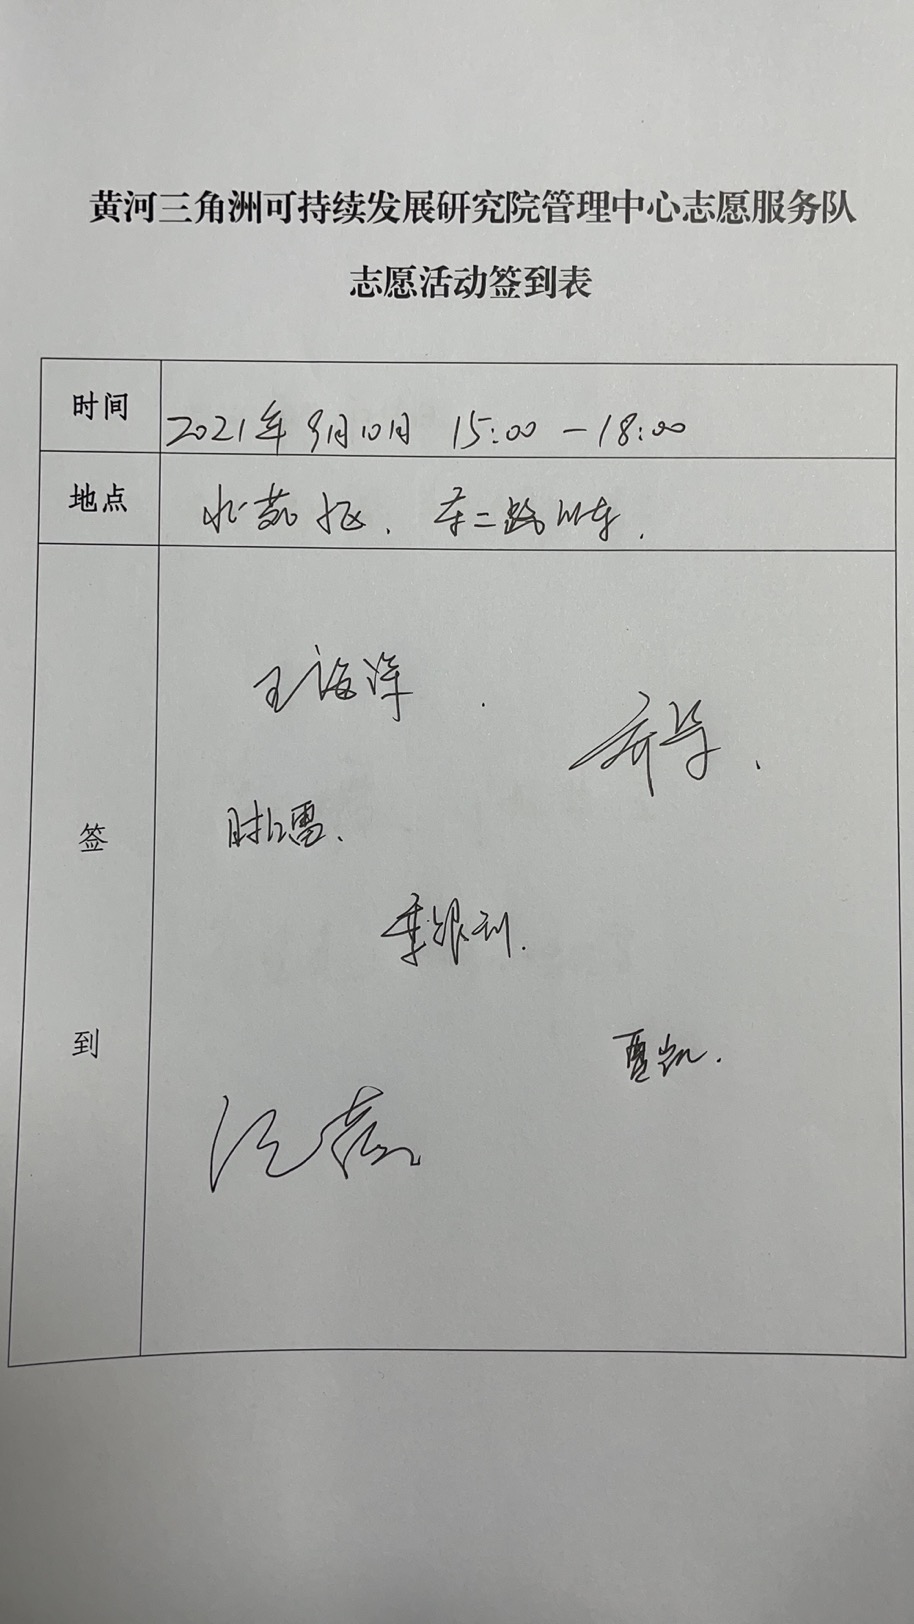 黄河三角洲可持续发展研究院管理中心志愿服务队
志愿活动签到表
时间
2021年9月10日 15:00 - 18:00
地点
东二路以东.
签
到
王海洋
季银利.
贾凯.